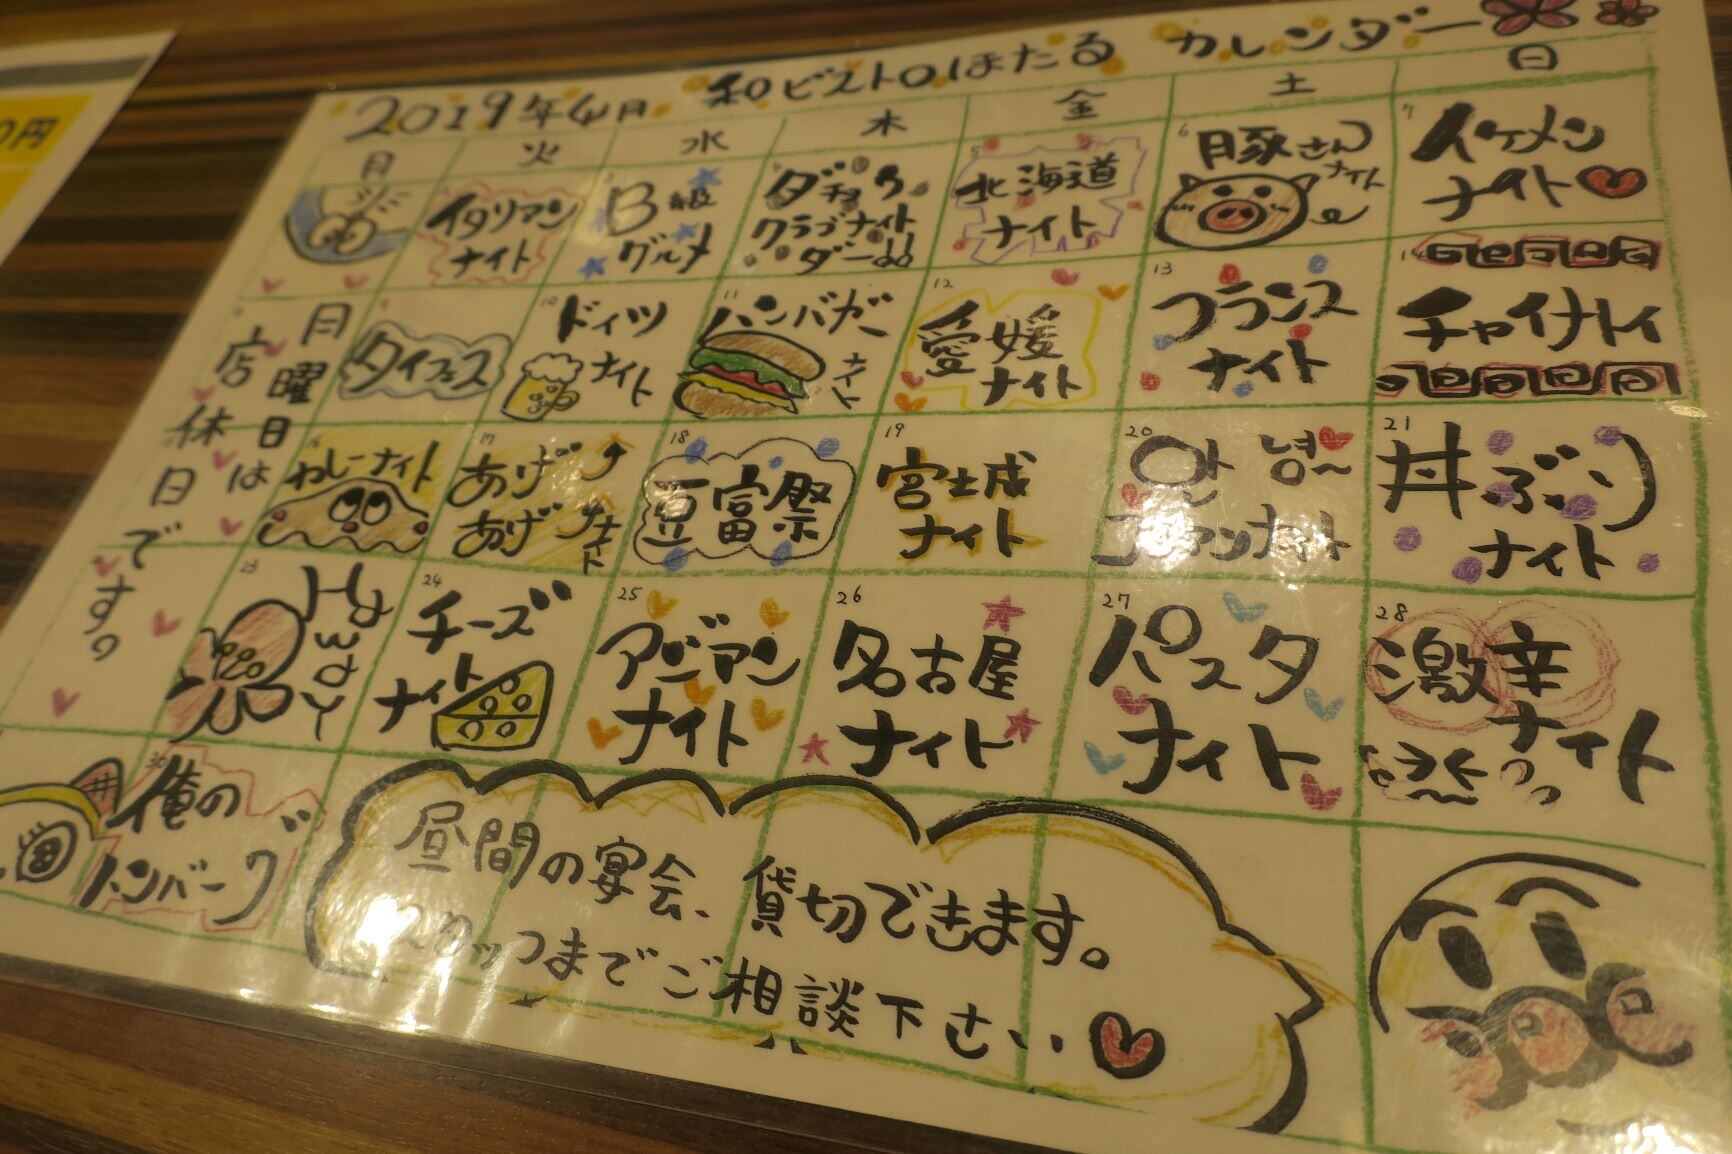 0円
2019年4月 和ビストロほたる カレンダー
月 火 水 木 金 土 日
2 イタリアン ナイト
3 B級 グルメ
4 ダチョウ クラブナイト ダー!!
5 北海道 ナイト
6 豚さん ナイト
7 イケメン ナイト
月曜日は
店休日です。
9 タイフェス
10 ドイツ ナイト
11 ハンバガー ナイト
12 愛媛 ナイト
13 フランス ナイト
14 チャイナナイト
16 カレーナイト
17 あげ あげ ナイト
18 豆富祭
19 宮城 ナイト
20 안녕~
21 丼ぶり ナイト
23 Hawaiイ
24 チーズ ナイト
25 アジアン ナイト
26 名古屋 ナイト
27 パスタ ナイト
28 激辛 ナイト
30 俺の ハンバーグ
昼間の宴会、貸切できます。
スタッフまでご相談下さい